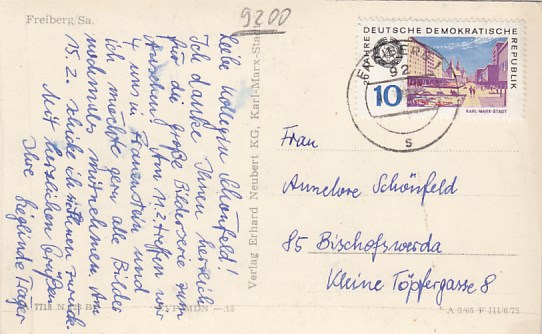 Freiberg Sa.
9200
Liebe Kollegin Schönfeld!
Ich danke Ihnen herzlich
für die große Bilderserie zum
Ansehn! Am 11.2. treffen wir
4 uns in Frauenstein und
ich möchte gern alle Bilder
nochmals mitnehmen. Am
15.2. schicke ich sie Ihnen zurück.
Mit herzlichen Grüßen
Ihre Sieglinde Träger
Verlag Erhard Neubert KG, Karl-Marx-Stadt
20 JAHRE DEUTSCHE DEMOKRATISCHE REPUBLIK
10
KARL-MARX-STADT
92
s
Frau
Annelore Schönfeld
85 Bischofswerda
Kleine Töpfergasse 8
A 3/65 F III/6/72